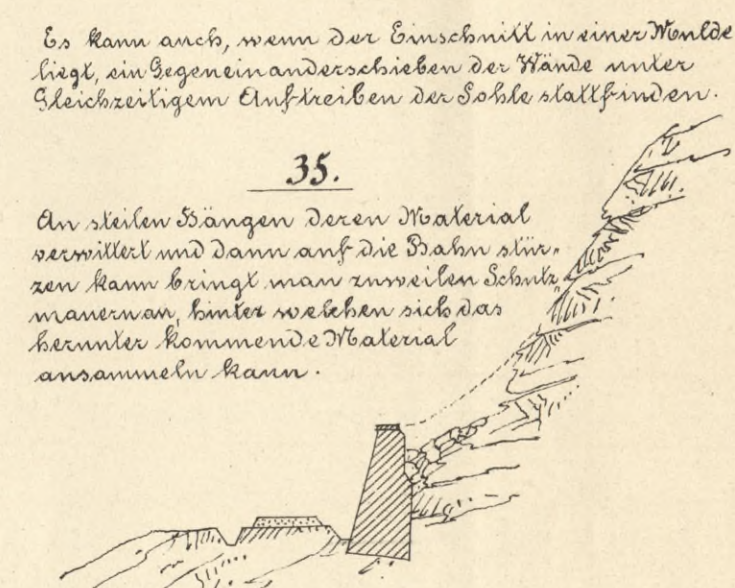 Es kann auch, wenn der Einschnitt in einer Mulde
liegt, ein Gegeneinanderschieben der Wände unter
Gleichzeitigem Auftreiben der Sohle stattfinden.
35.
An steilen Hängen deren Material
verwittert und dann auf die Bahn stür-
zen kann bringt man zuweilen Schutz-
mauern an, hinter welchen sich das
herunter kommende Material
ansammeln kann.